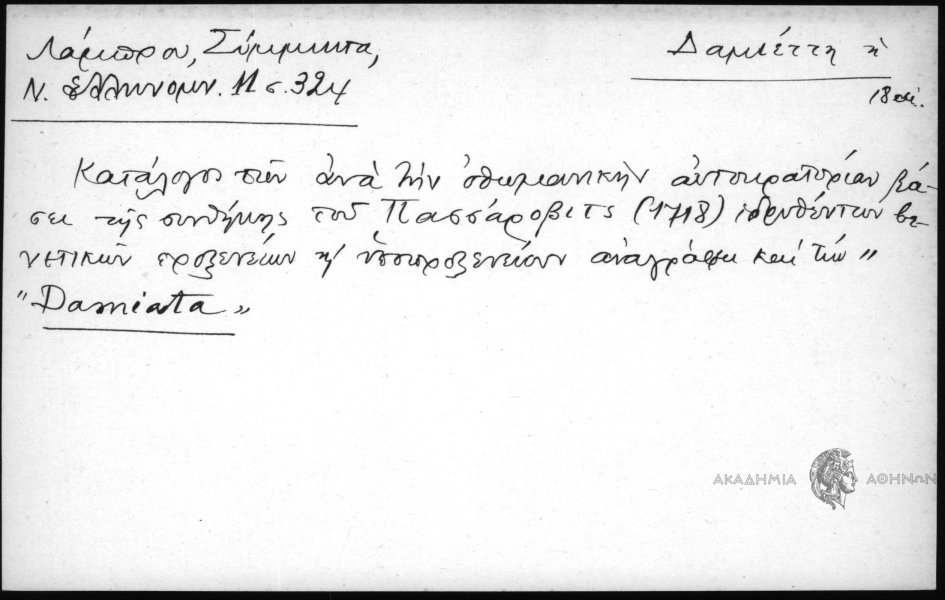 Λάμπρου, Σύμμικτα,
Ν. Ἑλληνομν. 11 σ. 324
Δαμιέττη ἡ
18 αἰ.
Κατάλογος τῶν ἀνὰ τὴν ὀθωμανικὴν αὐτοκρατορίαν βά-
σει τῆς συνθήκης τοῦ Πασσάροβιτς (1718) ἱδρυθέντων βε-
νετικῶν προξενείων κ' ὑποπροξενείων ἀναγράφει καὶ τὴν "
"Damiata"
ΑΚΑΔΗΜΙΑ ΑΘΗΝΩΝ